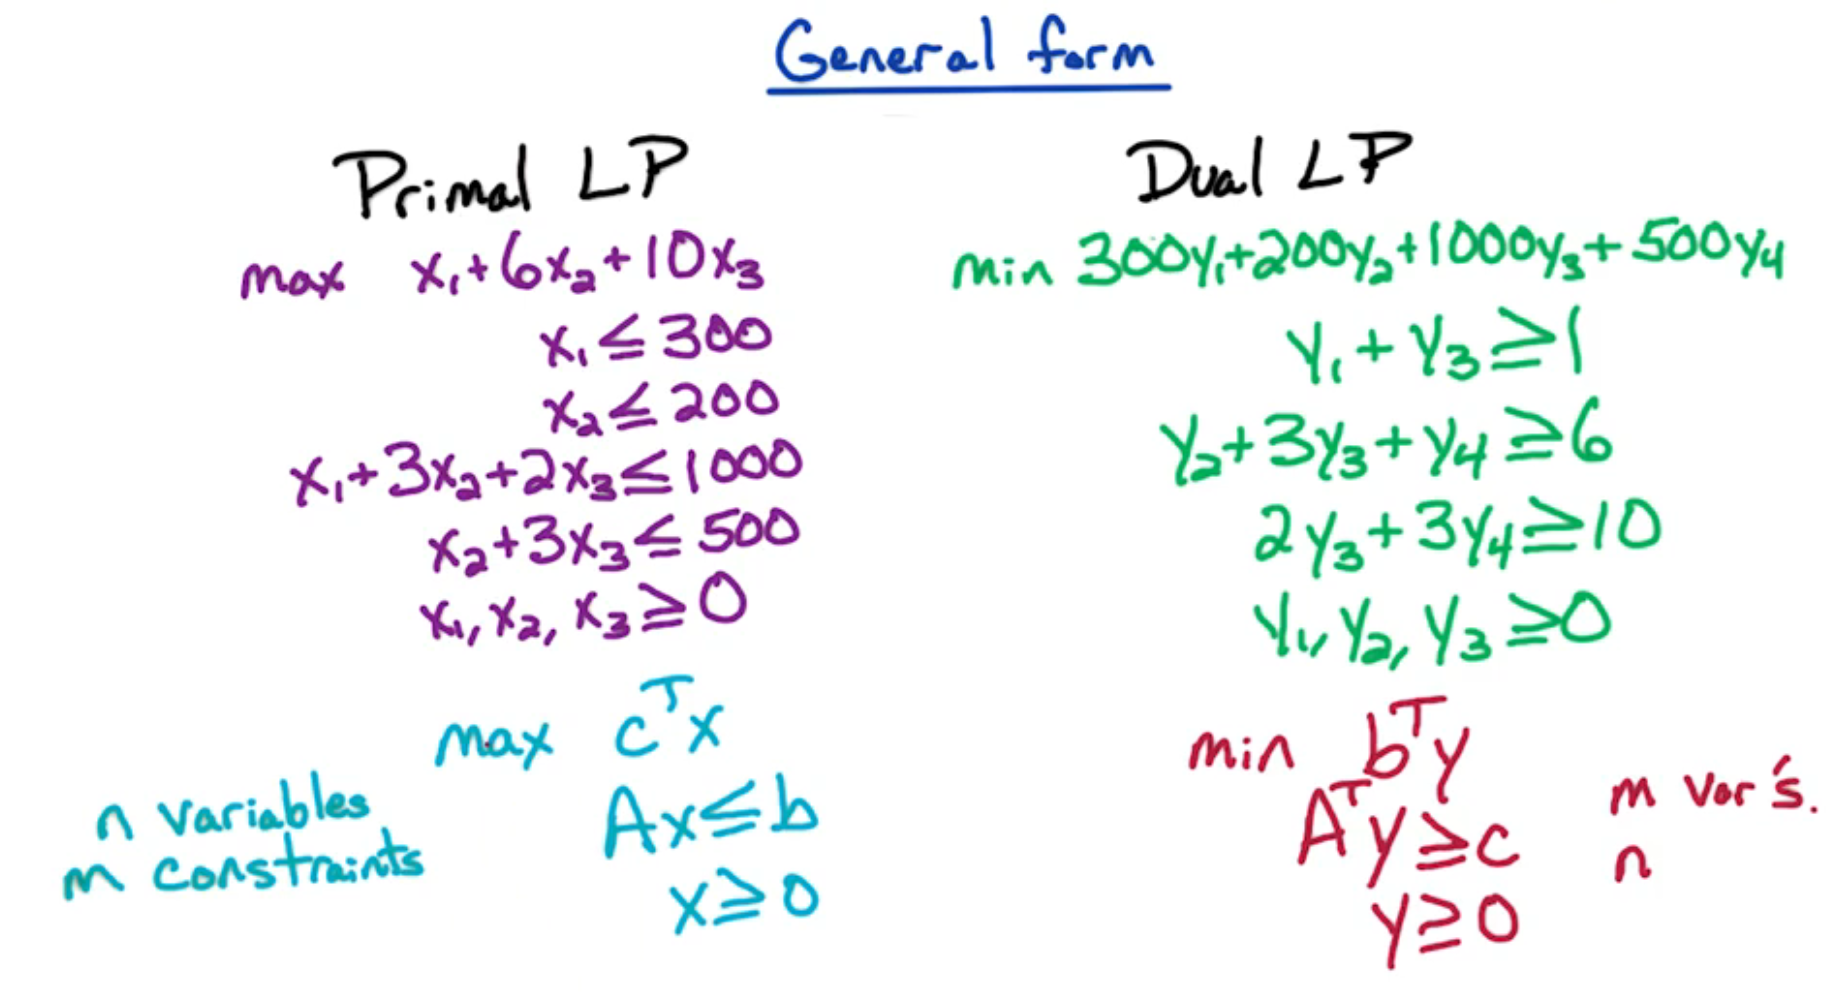 General form
Primal LP
max x₁+6x₂+10x₃
x₁≤300
x₂≤200
x₁+3x₂+2x₃≤1000
x₂+3x₃≤500
x₁, x₂, x₃≥0
max cᵀx
Ax≤b
x≥0
n variables
m constraints
Dual LP
min 300y₁+200y₂+1000y₃+500y₄
y₁+y₃≥1
y₂+3y₃+y₄≥6
2y₃+3y₄≥10
y₁, y₂, y₃≥0
min bᵀy
Aᵀy≥c
y≥0
m var's.
n